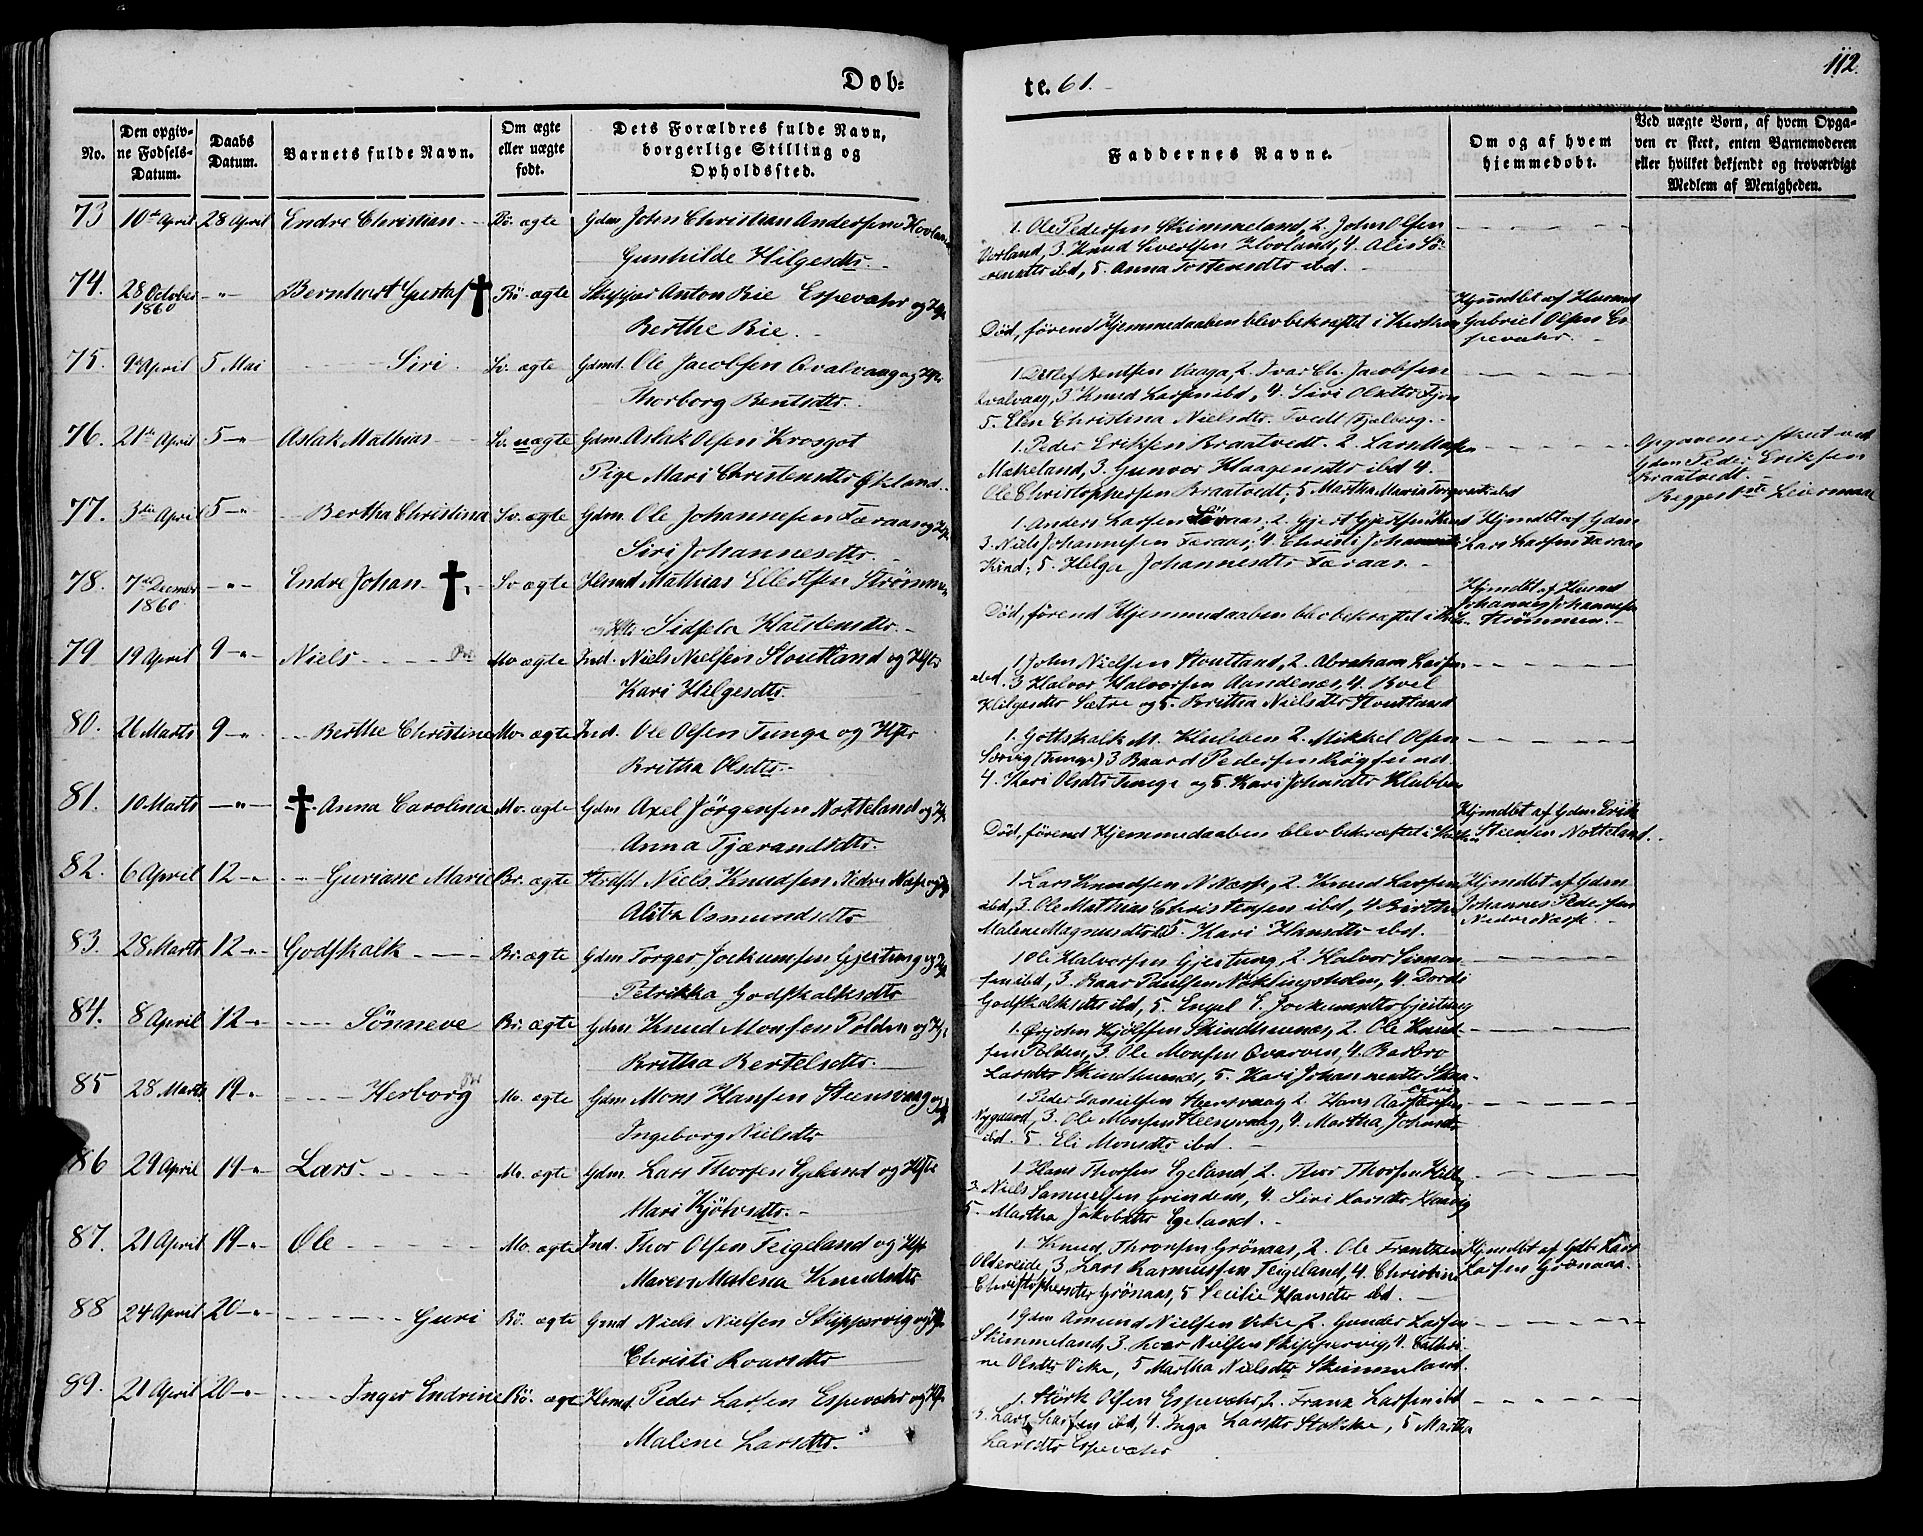 Døb=
te. 61.
112.
No.
Den opgiv-
ne Fødsels-
Datum.
Daabs
Datum.
Barnets fulde Navn.
Om ægte
eller uægte
født.
Dets Forældres fulde Navn,
borgerlige Stilling og
Opholdssted.
Faddernes Navne.
Om og af hvem
hjemmedøbt.
Ved uægte Børn, af hvem Opga-
ven er skeet, enten Barnemoderen
eller hvilket bekjendt og troværdigt
Medlem af Menigheden.
73 10de April 28 April Endre Christian Bö. ægte Gdm John Christian Andersen Hovland
Gunhilde Helgesdtr.
1. Ole Pedersen Skimmeland, 2. John Olsen
Vorland, 3 Knud Sivertsen Hovland, 4.
ibd, 5. Anna Torstensdtr ibd.
74. 28 October 1860 -"- Bernhart Gustaf † Bö ægte Skipper Anton Bie Espevær og H.
Berthe Bie.
Död, førend Hjemmedaaben blev bekræftet i Kirken
Hjmdbt af Husmd
Gabriel Olsen Es-
pevær.
75. 9de April 5 Mai Siri Sv. ægte Gdmd. Ole Jacobsen Qvalvaag og Hu
Thorborg Bentsdtr.
1. Detlef Bentsen Vaaga, 2. Ivar Ch. Jacobsen
Qvalvaag, 3 Knud Larsen ibd, 4. Siri Olsdtr
5. Elen Christina Nielsdtr. Tvedt Fjelberg.
76. 21de April 5 -"- Aslak Mathias Sv. uægte Gdm. Aslak Olsen Krosgot
Pige Mari Christensdtr Økland.
1. Peder Eriksen Braatvedt. 2. Lars
Mækeland, 3. Gunvor Haagensdtr ibd 4.
Ole Christophersen Braatvedt, 5 Martha Maria ibd
Opgaven er skeet ved
Gdm Peder Eriksen
Braatvedt.
77. 3die April 5 -"- Bertha Christina Sv. ægte Gdm. Ole Johannesen Faraas og H.
Siri Johannesdtr.
1. Anders Larsen 2. Gjert Gjertsen
3. Niels Johannesen Faraas, 4. Christi
5. Helga Johannesdtr Faraas.
Hjmdbt af Gdm
Lars Larsen Faraas
78. 7de Decemb 1860. -"- Endre Johan † Sv ægte Husmd Mathias Ellertsen Strömmen
Sidsela
Död, førend Hjemmedaaben blev bekræftet i
Hjmdbt af Husmd
Johannes Johannesen
Strömmen.
79 19 April 9 -"- Niels Mo ægte Ind. Niels Nielsen Stoutland og Hstr
Kari Helgesdtr.
1. John Nielsen Stoutland, 2. Abraham Larsen
ibd. 3 Halvor Halvorsen Aandenæs, 4.
Helgesdtr Sætre og 5. Britha Nielsdtr Stoutland
80. 26 Marts 9 -"- Berthe Christine Mo. ægte Ind. Ole Olsen Tunge og Hstr
Britha Olsdtr.
1. Gottskalk M. Klubben 2. Mikkel Olsen
Sørvig (Tunge) 3 Baard Pedersen Røgsund
4. Kari Olsdtr Tunge og 5. Kari Johnsdtr Klubben
81. 10 Marts -"- † Anna Carolina Mo. ægte Gdm Axel Jörgensen Notteland og H.
Anna Tjærandsdtr.
Död, førend Hjemmedaaben blev bekræftet i
Hjmdbt af Gdm Erik
Steensen Notteland.
82. 6 April 12 -"- Guriane Marie Br. ægte Niels Knudsen Nedre og
Alita Osmundsdtr
1. Lars Knudsen 2. Knud Larsen
ibd, 3. Ole Mathias Christensen ibd, 4 Birthe
Malene Magnusdtr 5. Kari Hansdtr ibd.
Hjmdbt af Gdm
Johannes Pedersen
Nedre
83. 28 Marts 12 -"- Godskalk Br. ægte Gdm Torger Jockumsen Gjertung og
Petrikka Godskalksdtr
1 Ole Halvorsen Gjertung, 2 Halvor Simon-
sen ibd, 3. Baar Paulsen Nöklingsholm, 4. Dordi
Godskalksdtr ibd, 5. Engel Jockumsdtr Gjertung
84. 8 April 12 -"- Sönneve Br. ægte Gdm Knud Monsen Polden og H.
Britha Bertelsdtr.
1. Skindhuenæs, 2. Ole Knud-
sen Polden, 3. Ole Monsen Qvarven, 4. Barbro
Larsdtr Skindhuenæs, 5. Kari Johannesdtr
85 28 Marts 19 -"- Herborg Mo. ægte Gdm Mons Hansen Steensvaag og
Ingeborg Nielsdtr
1 Peder Danielsen Steensvaag 2. Hans
Nygaard, 3. Ole Monsen Steensvaag, 4. Martha Johnsdtr
ibd. 5. Eli Monsdtr ibd.
86 29 April 19 -"- Lars Mo. ægte Gdm. Lars Thorsen Egeland og Hstr
Mari Kjötvsdtr.
1. Hans Thorsen Egeland 2. Thor Thorsen
3. Niels Samuelsen Grindem, 4. Siri Larsdtr
5. Martha Jakobsdtr Egeland.
87. 21 April 19 -"- Ole Mo. ægte Ind. Thor Olsen Teigeland og Hstr
Maren Malena Knudsdtr
1. Knud Thorsen Grönaas, 2. Ole Frantzen
Oldereide, 3 Lars Rasmussen Teigeland, 4. Christine
Christophersdtr Grönaas, 5 Cecilie Hansdtr ibd.
Hjmdbt af Gdbr Lars
Larsen Grönaas.
88 24 April 20 -"- Guri Bö. ægte Gmd Niels Nielsen Skippervig og H.
Christi Roarsdtr
1 Gdm Amund Nielsen Vike 2. Gunder Larsen
Skimmeland, 3. Ivar Nielsen Skippervig, 4. Cathri-
ne Olsdtr Vike, 5 Martha Nielsdtr Skimmeland.
89. 21 April 20 -"- Inger Endrine Bö. ægte Husmd. Peder Larsen Espevær og H.
Malene Larsdtr.
1. Störk Olsen Espevær, 2. Franz Larsen ibd
3. Lars Larsen ibd, 4. Inga Larsdtr Stokke, 5 Martha
Larsdtr Espevær